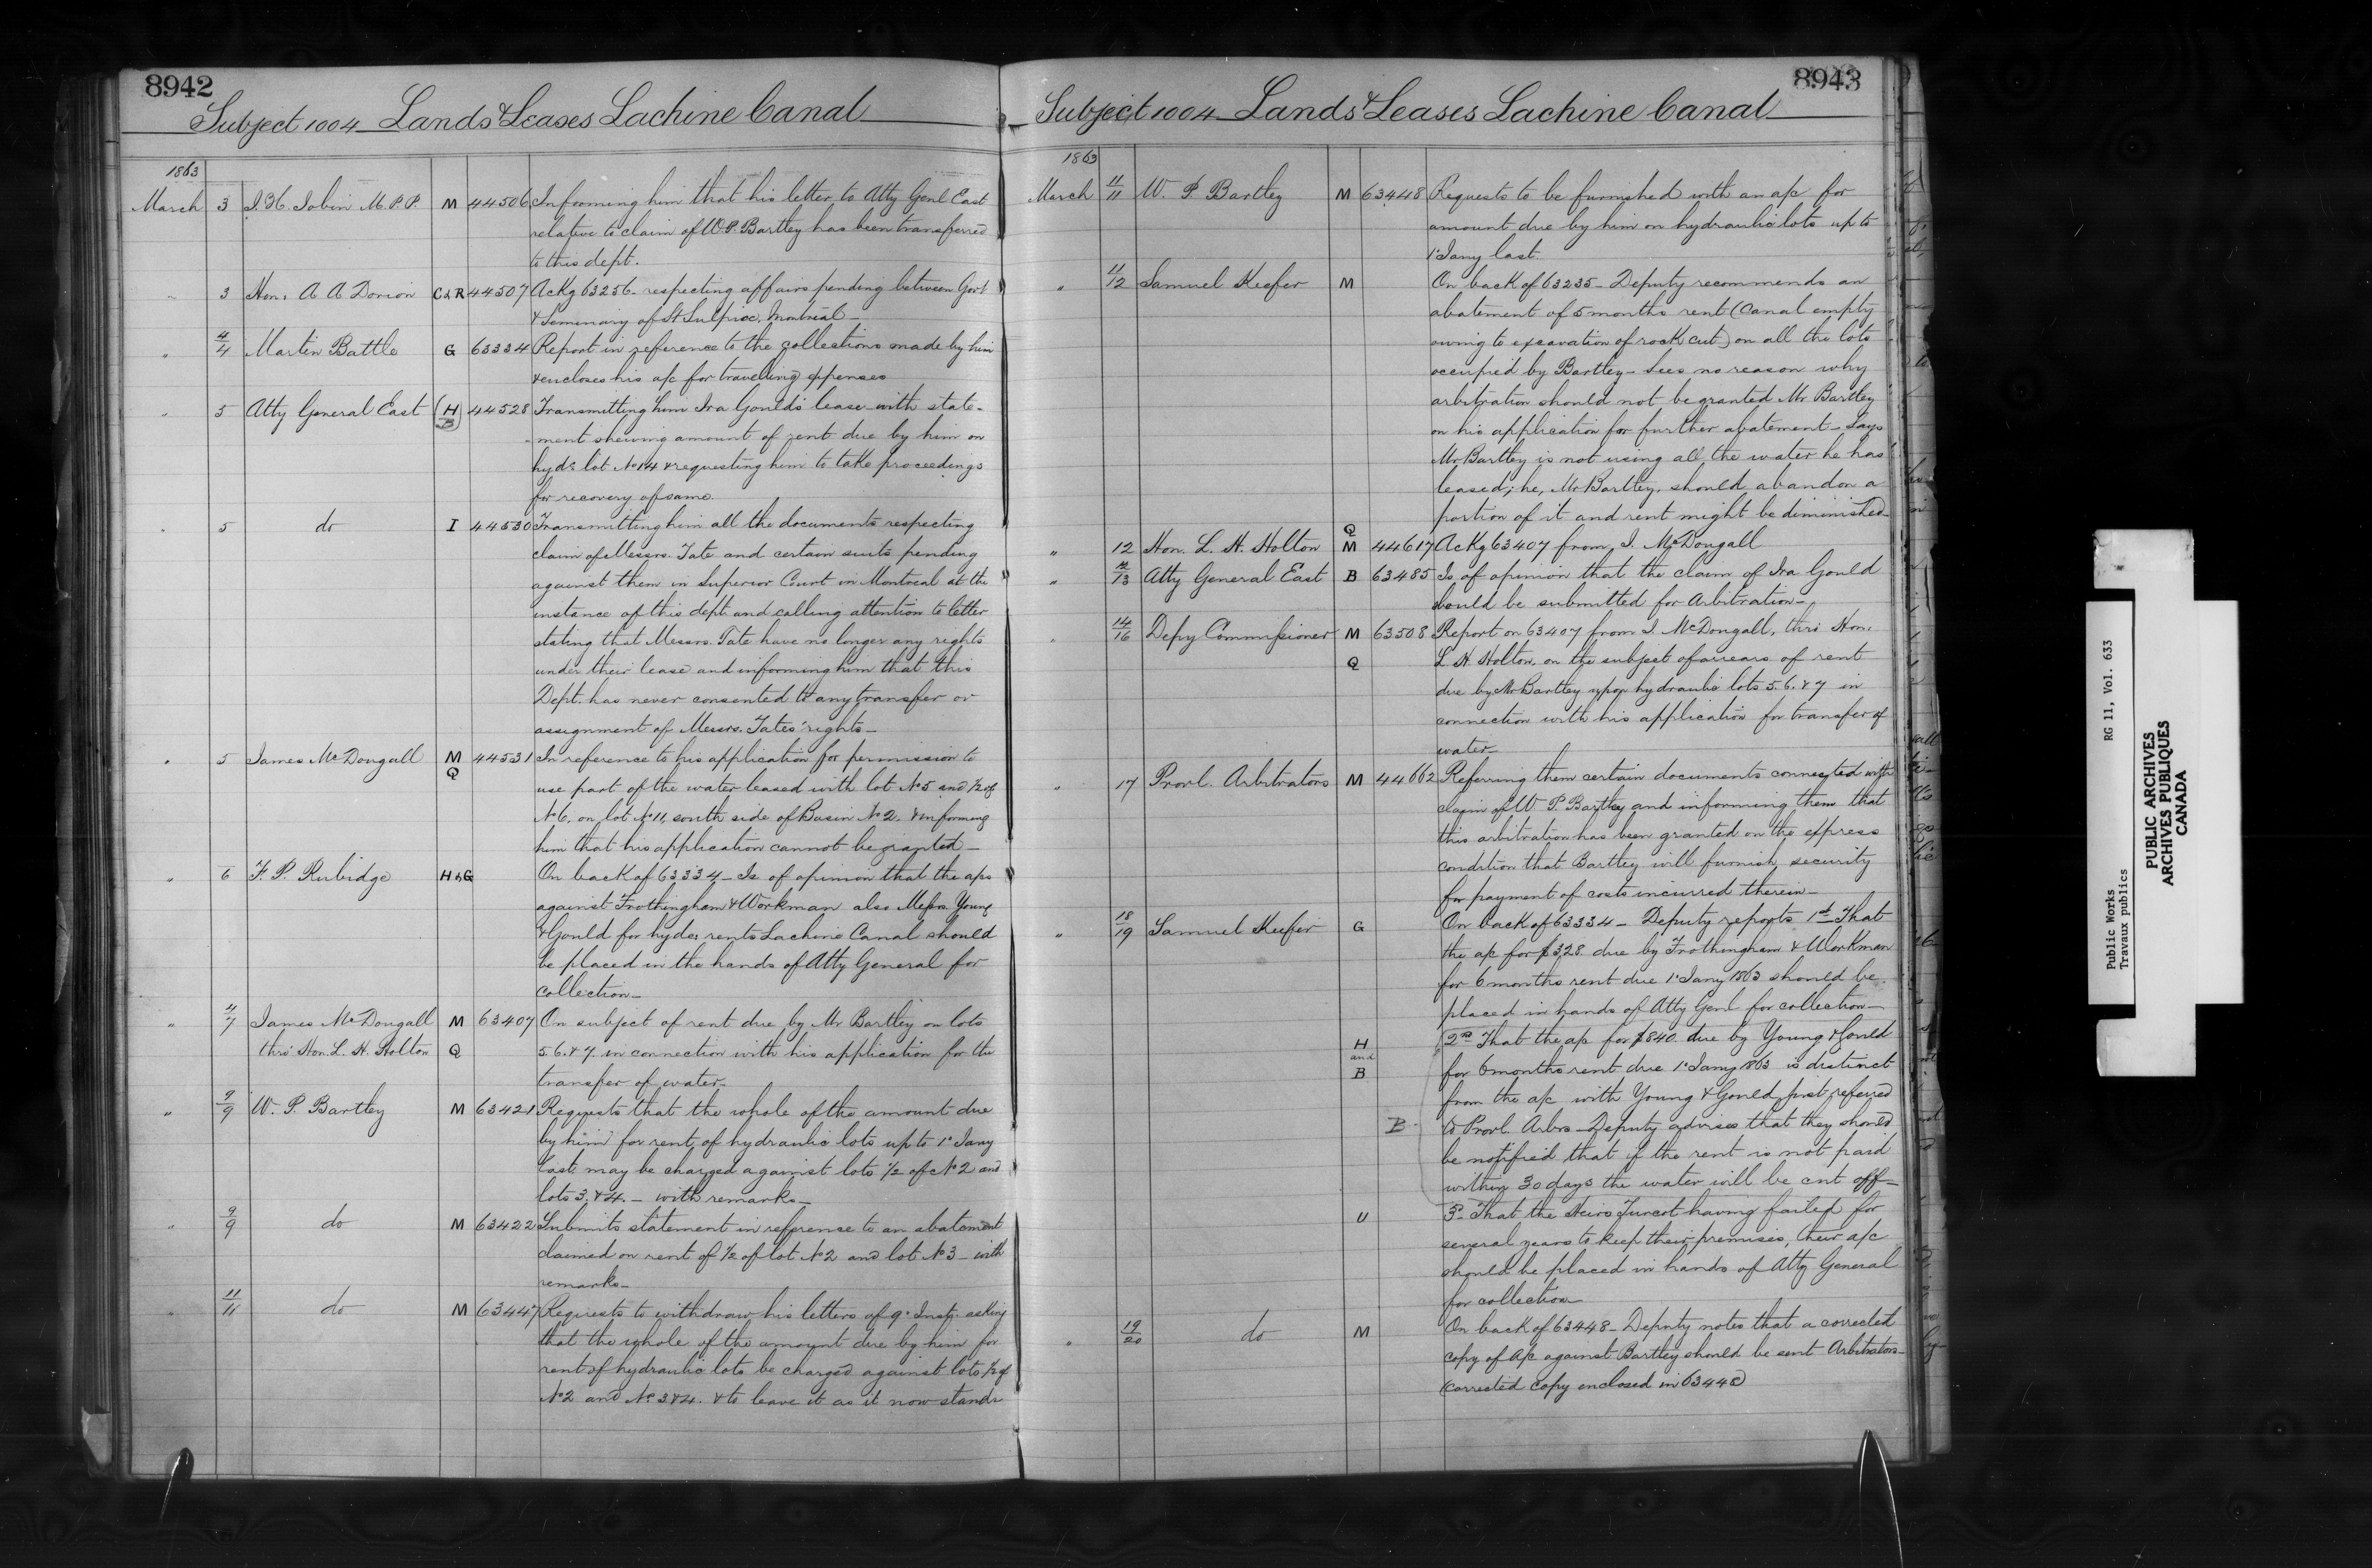 8942
Subject 1004 Lands & Leases Lachine Canal
1863
March 3 J. H. Jobin M.P.P. M 44506 Informing him that his letter to Atty Genl East
relative to claim of W.P. Bartley has been transferred
to this dept.
" 3 Hon: A A Dorion C&R 44507 Ackg 63256 - respecting affairs pending between Govt
& Seminary of St Sulpice, Montreal -
" 4/4 Martin Battle G 63334 Report in reference to the collections made by him
& encloses his a/c for travelling expenses
" 5 Atty General East (H B) 44528 Transmitting him Ira Gould's lease with state-
-ment shewing amount of rent due by him on
hydc lot No 14 & requesting him to take proceedings
for recovery of same.
" 5 do I 44530 Transmitting him all the documents respecting
claim of Messrs. Tate and certain suits pending
against them in Superior Court in Montreal at the
instance of this dept and calling attention to letter
stating that Messrs. Tate have no longer any rights
under their lease and informing him that this
Dept. has never consented to any transfer or
assignment of Messrs. Tates' rights -
" 5 James McDougall M Q 44531 In reference to his application for permission to
use part of the water leased with lot No 5 and 1/2 of
No 6, on lot No 11, south side of Basin No 2. & informing
him that his application cannot be granted -
" 6 F. P. Rubidge H & G On back of 63334 - Is of opinion that the a/cs
against Frothingham & Workman also Messrs. Young
& Gould for hydc rents Lachine Canal should
be placed in the hands of Atty General for
collection -
" 4/7 James McDougall M 63407 On subject of rent due by Mr Bartley on lots
thro' Hon. L. H. Holton Q 5. 6. & 7. in connection with his application for the
transfer of water -
" 9/9 W. P. Bartley M 63421 Requests that the whole of the amount due
by him for rent of hydraulic lots up to 1st Jany
last may be charged against lots 1/2 of No 2 and
lots 3. & 4. - with remarks -
" 9/9 do M 63422 Submits statement in reference to an abatement
claimed on rent of 1/2 of lot No 2 and lot No 3 - with
remarks -
" 11/11 do M 63447 Requests to withdraw his letters of 9th Inst. asking
that the whole of the amount due by him for
rent of hydraulic lots be charged against lots 1/2 of
No 2 and No 3 & 4. & to leave it as it now stands
8943
Subject 1004 Lands & Leases Lachine Canal
1863
March 11/11 W. P Bartley M 63448 Requests to be furnished with an a/c for
amount due by him on hydraulic lots up to
1st Jany last
" 11/12 Samuel Keefer M On back of 63235 - Deputy recommends an
abatement of 5 months rent (Canal empty
owing to excavation of rock cut) on all the lots
occupied by Bartley - Sees no reason why
arbitration should not be granted Mr Bartley
on his application for further abatement - Says
Mr Bartley is not using all the water he has
leased; he, Mr Bartley, should abandon a
portion of it and rent might be diminished -
" 12 Hon. L. H. Holton Q M 44617 Ackg 63407 from J. McDougall
" 12/13 Atty General East B 63485 Is of opinion that the claim of Ira Gould
should be submitted for Arbitration -
" 14/16 Depy Commissioner M 63508 Report on 63407 from J. McDougall, thro' Hon:
Q L H Holton, on the subject of arrears of rent
due by Mr Bartley upon hydraulic lots 5. 6. & 7 in
connection with his application for transfer of
water -
" 17 Provl. Arbitrators M 44662 Referring them certain documents connected with
claim of W P. Bartley and informing them that
this arbitration has been granted on the express
condition that Bartley will furnish security
for payment of costs incurred therein -
" 18/19 Samuel Keefer G On back of 63334 - Deputy reports 1st That
the a/c for $328 due by Frothingham & Workman
for 6 months rent due 1st Jany 1863 should be
placed in hands of Atty Genl for collection -
H and B 2nd That the a/c for $840. due by Young & Gould
for 6 months rent due 1st Jany 1863 is distinct
from the a/c with Young & Gould just referred
B. to Provl. Arbrs - Deputy advises that they should
be notified that if the rent is not paid
within 30 days the water will be cut off -
U 3rd That the Heirs Turcot having failed for
several years to keep their premises, their a/c
should be placed in hands of Atty General
for collection
" 19/20 do M On back of 63448 - Deputy notes that a corrected
copy of a/c against Bartley should be sent Arbitrators -
(corrected copy enclosed in 63448)
Public Works RG 11, Vol. 633
Travaux publics
PUBLIC ARCHIVES
ARCHIVES PUBLIQUES
CANADA